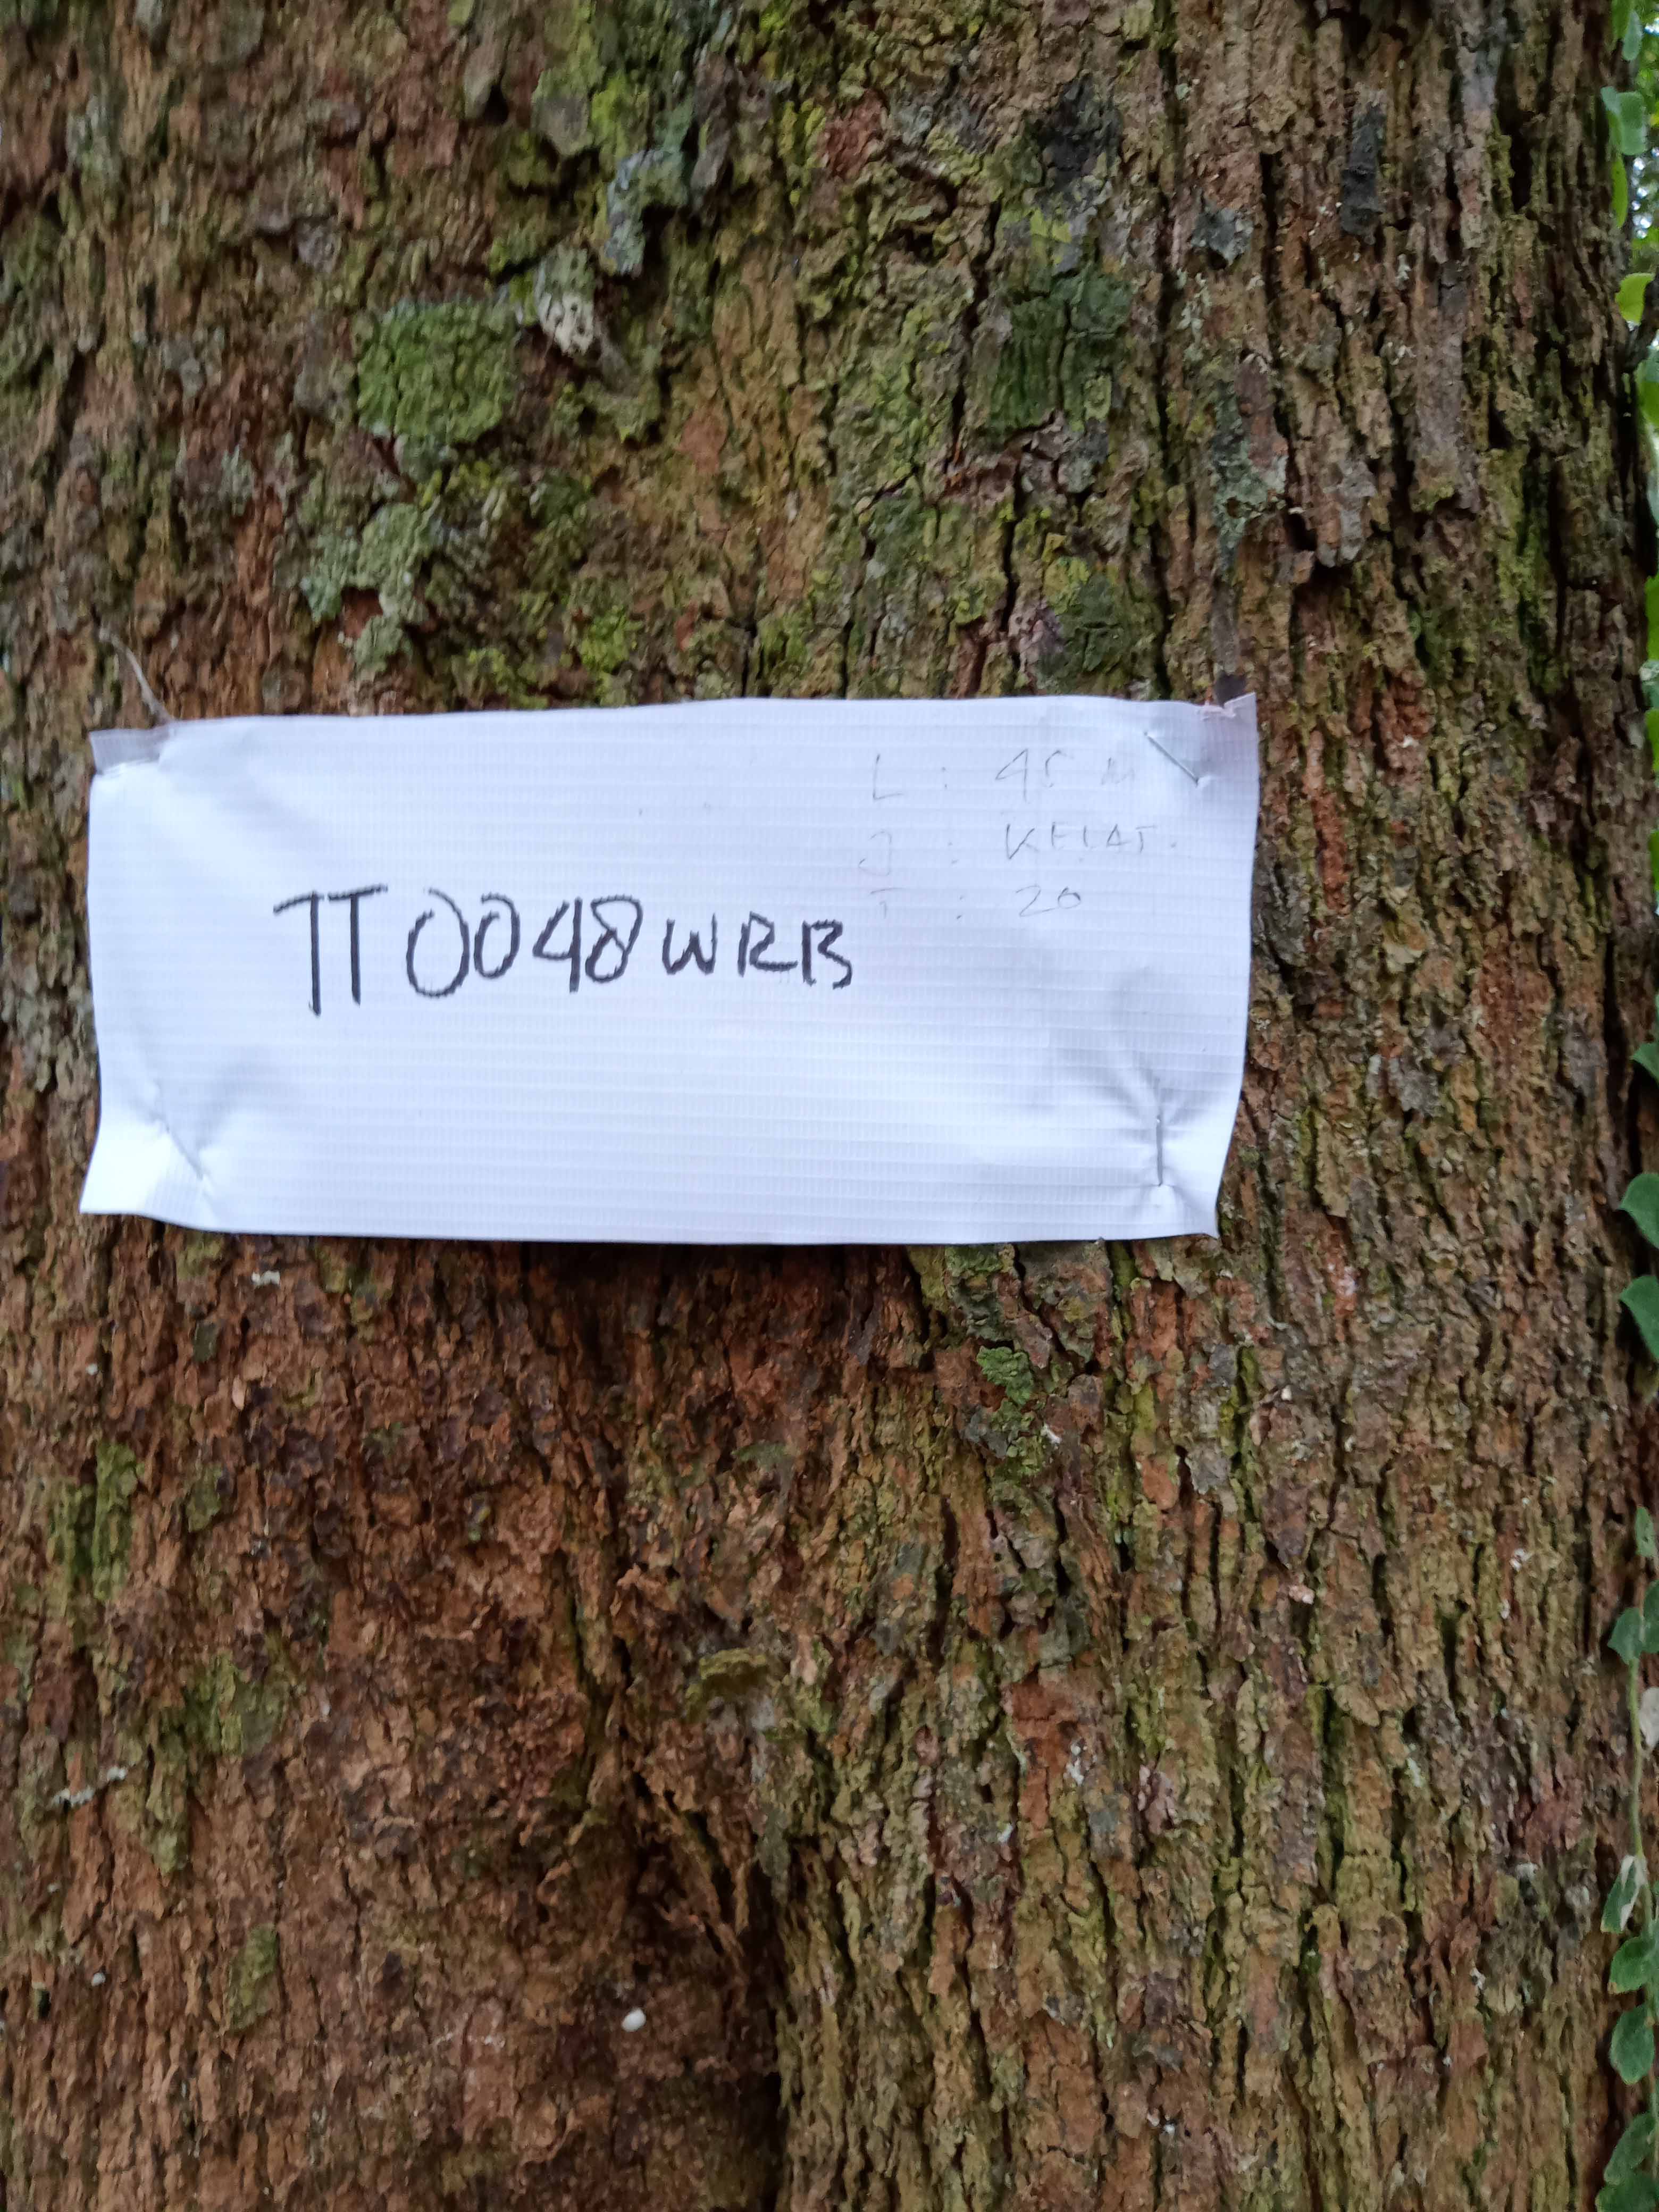 L : 45 M
J : KELAT
T : 20
TT0048WRB